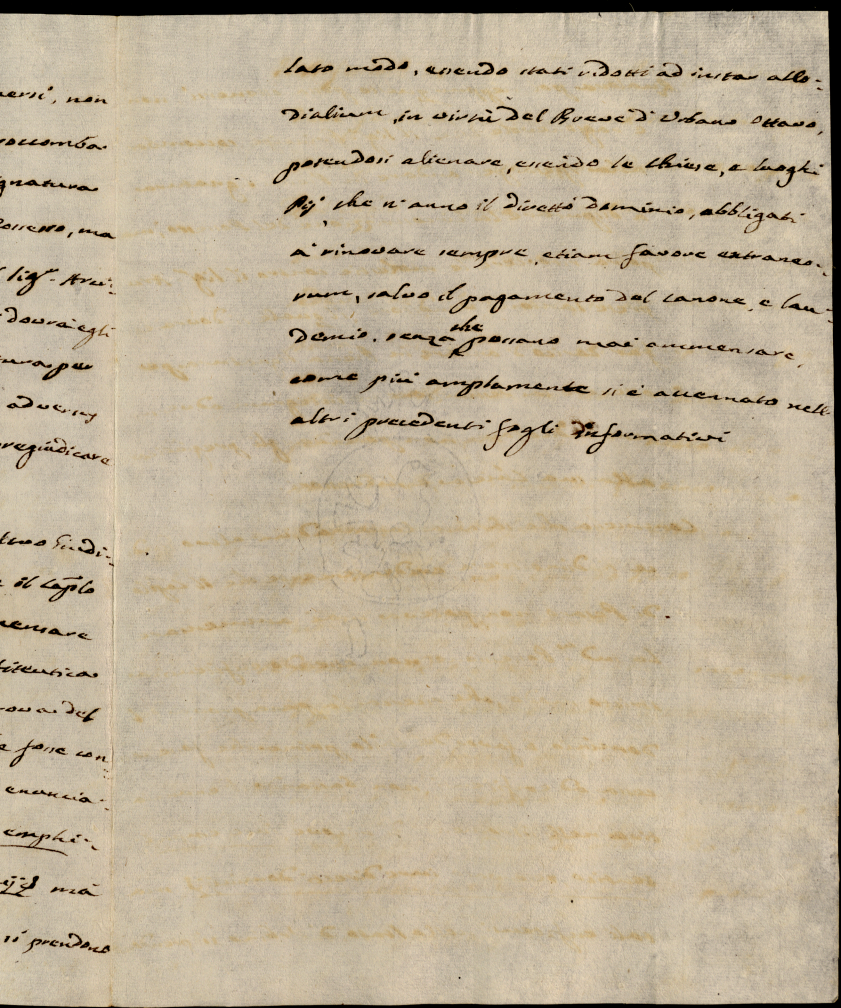 nersi, non
soccomba
gnatura
Possesso, ma
dovrà egli
tura per
adversus
pregiudicare
tivo Giudi-
e il Caplo
mensare
fiteutica
rova del
e fosse con-
enuncia-
emphi-
mà
si prendono
lato modo, essendo stati ridotti ad instar allo-
dialium, in virtù del Breve d'Urbano Ottavo,
potendosi alienare, essendo le Chiese, e luoghi
Pij che n'anno il diretto dominio, abbligati
à rinovare sempre, etiam favore extraneo-
rum, salvo il pagamento del canone, e lau-
demio, senza che possano mai ammensare,
come più amplamente si è accennato nell
altri precedenti fogli informativi